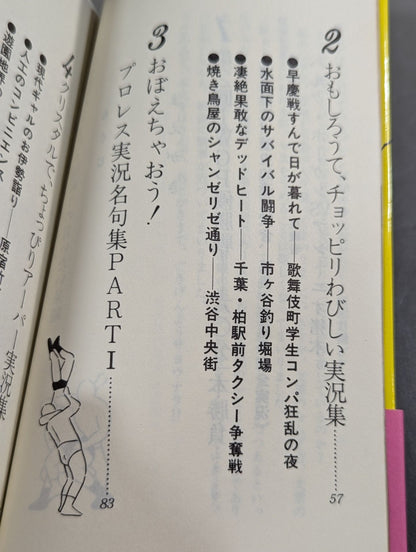 2 おもしろうて、チョッピリわびしい実況集………57
●早慶戦すんで日が暮れて──歌舞伎町学生コンパ狂乱の夜
●水面下のサバイバル闘争──市ヶ谷釣り堀場
●凄絶果敢なデッドヒート──千葉・柏駅前タクシー争奪戦
●焼き鳥屋のシャンゼリゼ通り──渋谷中央街
3 おぼえちゃおう!
プロレス実況名句集PARTⅠ………83
4 クリスタルで、ちょっぴりアーバン実況集
●現代ギャルのお伊勢詣り──原宿
●人工のコンビニエンス
●遊園地